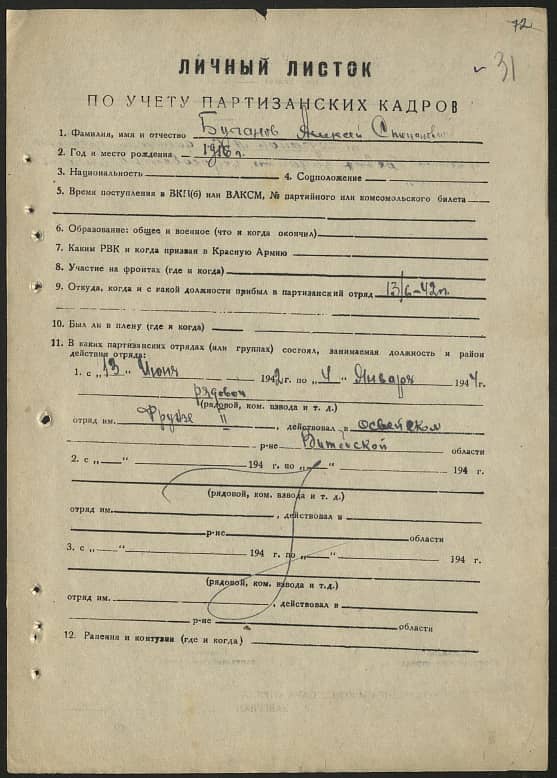 72
31
ЛИЧНЫЙ ЛИСТОК
ПО УЧЕТУ ПАРТИЗАНСКИХ КАДРОВ
1. Фамилия, имя и отчество Буганов Алексей
2. Год и место рождения 1916 г.
3. Национальность 4. Соцположение
5. Время поступления в ВКП(б) или ВЛКСМ, № партийного или комсомольского билета
6. Образование: общее и военное (что и когда окончил)
7. Каким РВК и когда призван в Красную Армию
8. Участие на фронтах (где и когда)
9. Откуда, когда и с какой должности прибыл в партизанский отряд 13/6-42 г.
10. Был ли в плену (где и когда)
11. В каких партизанских отрядах (или группах) состоял, занимаемая должность и район
действия отряда:
1. с „13" Июня 1942 г. по „4" Января 1944 г.
рядовой
(рядовой, ком. взвода и т. д.)
отряд им. Фрунзе II, действовал в Освейском
р-не Витебской области
2. с „ " 194 г. по „ " 194 г.
(рядовой, ком. взвода и т. д.)
отряд им. , действовал в
р-не области
3. с „ " 194 г. по „ " 194 г.
(рядовой, ком. взвода и т.д.)
отряд им. , действовал в
р-не области
12. Ранения и контузии (где и когда)